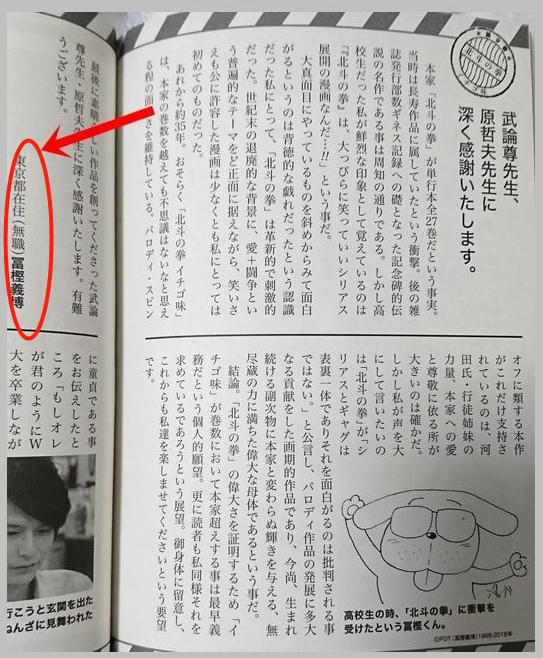 北斗の拳
武論尊先生、
原哲夫先生に
深く感謝いたします。
本家「北斗の拳」が単行本全27巻だという事実。
当時は長寿作品に属していたという衝撃。後の雑
誌発行部数ギネス記録への礎となった記念碑的伝
説の名作である事は周知の通りである。しかし高
校生だった私が鮮烈な印象として覚えているのは
『「北斗の拳」は、大っぴらに笑っていいシリアス
展開の漫画なんだ…!!』という事だ。
大真面目にやっているものを斜めからみて面白
がるというのは背徳的な戯れだったという認識
だった私にとって、「北斗の拳」は革新的で刺激的
だった。世紀末の退廃的な背景に、愛+闘争とい
う普遍的なテーマをど正面に据えながら、笑いさ
えも公に許容した漫画は少なくとも私にとっては
初めてのものだった。
あれから約35年。おそらく「北斗の拳 イチゴ味」
は、本家の巻数を越えても不思議はないなと思え
る程の面白さを維持している。パロディ・スピン
オフに類する本作
がこれだけ支持さ
れているのは、河
田氏・行徒姉妹の
力量、本家への愛
と尊敬に依る所が
大きいのは確かだ。
しかし私が声を大
にして言いたいの
は「北斗の拳」が「シ
リアスとギャグは
表裏一体でありそれを面白がるのは批判される事
ではない。」と公言し、パロディ作品の発展に多大
なる貢献をした画期的作品であり、今尚、生まれ
続ける副次物に本家と変わらぬ輝きを与える、無
尽蔵の力に満ちた偉大な母体であるという事だ。
結論。「北斗の拳」の偉大さを証明するため「イ
チゴ味」が巻数において本家超えする事は最早義
務だという個人的願望。更に読者も私同様それを
求めているであろうという展望。御身体に留意し、
これからも私達を楽しませてくださいという要望
です。
高校生の時、「北斗の拳」に衝撃を
受けたという冨樫くん。
©POT（冨樫義博）1998-2018年
最後に素晴らしい作品を創ってくださった武論
尊先生・原哲夫先生に深く感謝いたします。有難
うございます。
東京都在住（無職）冨樫義博
に童貞である事
をお伝えしたと
ころ「もしオレ
が君のようにW
大を卒業しなが
行こうと玄関を出た
ねんざに見舞われた